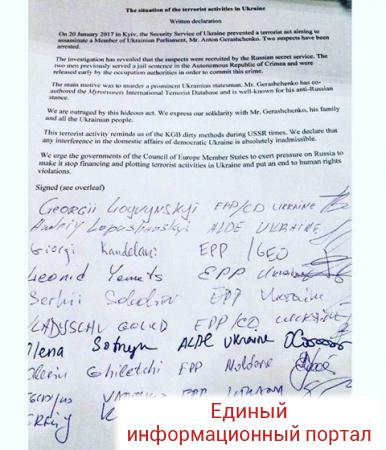 The situation of the terrorist activities in Ukraine
Written declaration
On 20 January 2017 in Kyiv, the Security Service of Ukraine prevented a terrorist act aiming to
assassinate a Member of Ukrainian Parliament, Mr. Anton Gerashchenko. Two suspects have been
arrested.
The investigation has revealed that the suspects were recruited by the Russian secret service. The
two men previously served a jail sentence in the Autonomous Republic of Crimea and were
released early by the occupation authorities in order to commit this crime.
The main motive was to murder a prominent Ukrainian statesman. Mr. Gerashchenko has co-
authored the Myrotvorets International Terrorist Database and is well-known for his anti-Russian
stance.
We are outraged by this hideous act. We express our solidarity with Mr. Gerashchenko, his family
and all the Ukrainian people.
This terrorist activity reminds us of the KGB dirty methods during USSR times. We declare that
any interference in the domestic affairs of democratic Ukraine is absolutely inadmissible.
We urge the governments of the Council of Europe Member States to exert pressure on Russia to
make it stop financing and plotting terrorist activities in Ukraine and put an end to human rights
violations.
Signed (see overleaf)
Georgii Logvynskyi EPP/CD UKRAINE
Andriy Lopushanskyi ALDE UKRAINE
Giorgi Kandelaki EPP /GEO
Leonid Yemets EPP Ukraine
Serhii Sobolev EPP Ukraine
EPP/CD UKRAINE
Olena Sotnyk ALDE Ukraine
Valeriu Ghiletchi EPP Moldova
EPP
Единый
информационный портал